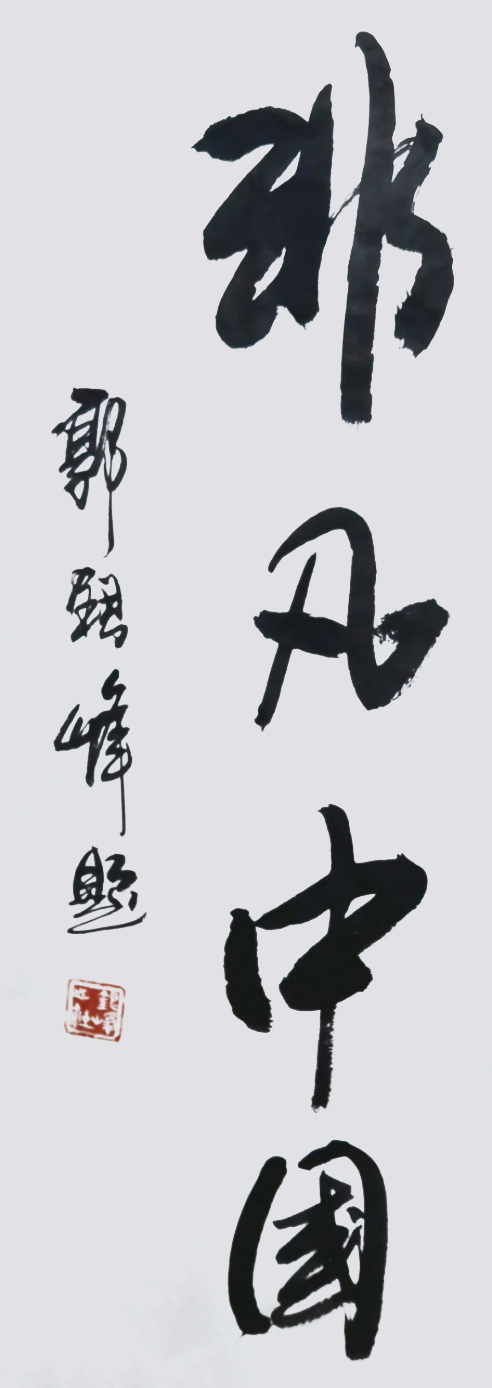 非凡中國
郭銀峰題